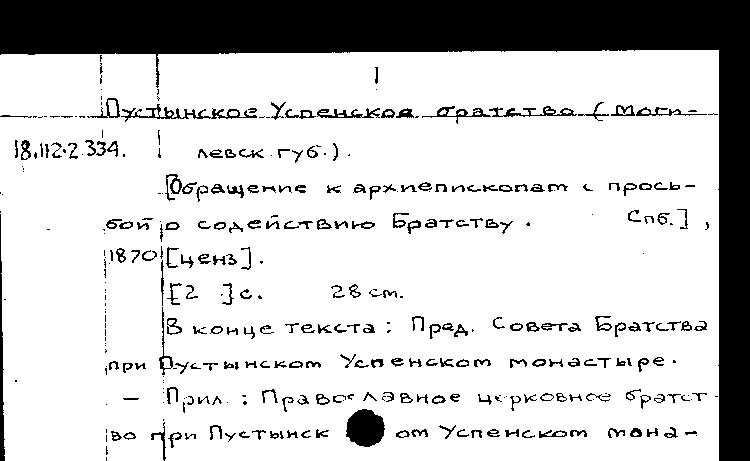 1
Пустынское Успенское братство (Моги-
18.112.2.334. левск. губ.).
[Обращение к архиепископам с прось-
бой о содействию Братству. Спб.],
1870 [ценз].
[2 ] с. 28 см.
В конце текста: Пред. Совета Братства
при Пустынском Успенском монастыре.
— Прил.: Православное церковное братст-
во при Пустынск ом Успенском мона-